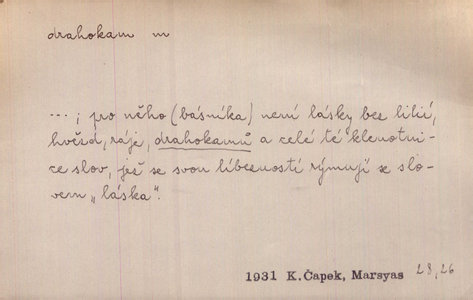 drahokam m
...; pro něho (básníka) není lásky bez lilií,
hvězd, ráje, drahokamů a celé té klenotni-
ce slov, jež se svou líbezností rýmují se slo-
vem „láska“.
1931 K. Čapek, Marsyas 28,26